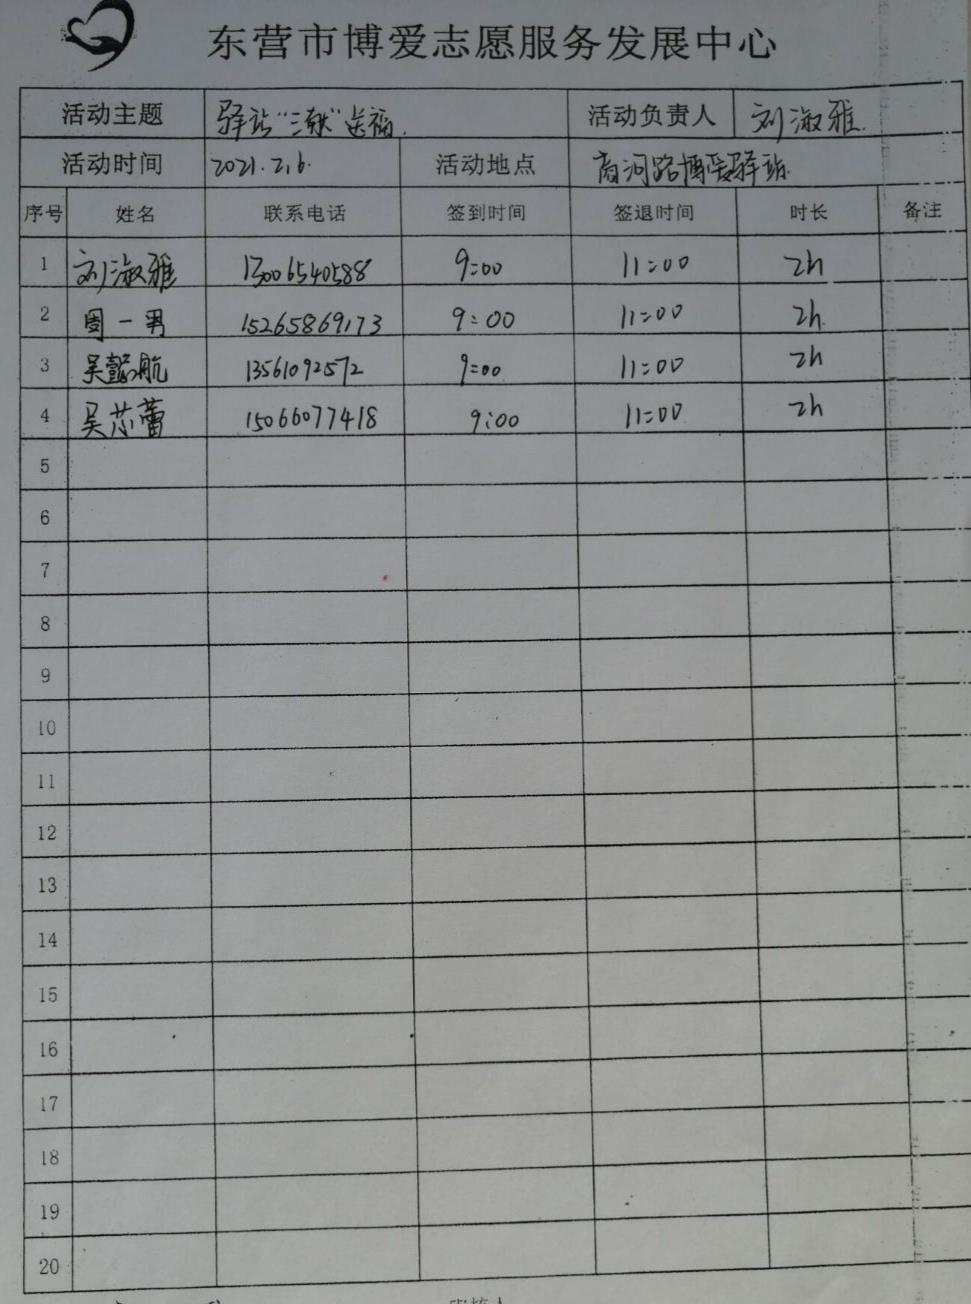 东营市博爱志愿服务发展中心
活动主题 驿站"三献"送福. 活动负责人 刘淑雅.
活动时间 2021.2.6. 活动地点 商河路博爱驿站.
序号 姓名 联系电话 签到时间 签退时间 时长 备注
1 刘淑雅 13006540588 9:00 11:00 2h
2 周一男 15265869173 9:00 11:00 2h.
3 吴懿航 13561092572 9:00 11:00 2h
4 吴芯蕾 15066077418 9:00 11:00 2h
5
6
7
8
9
10
11
12
13
14
15
16
17
18
19
20